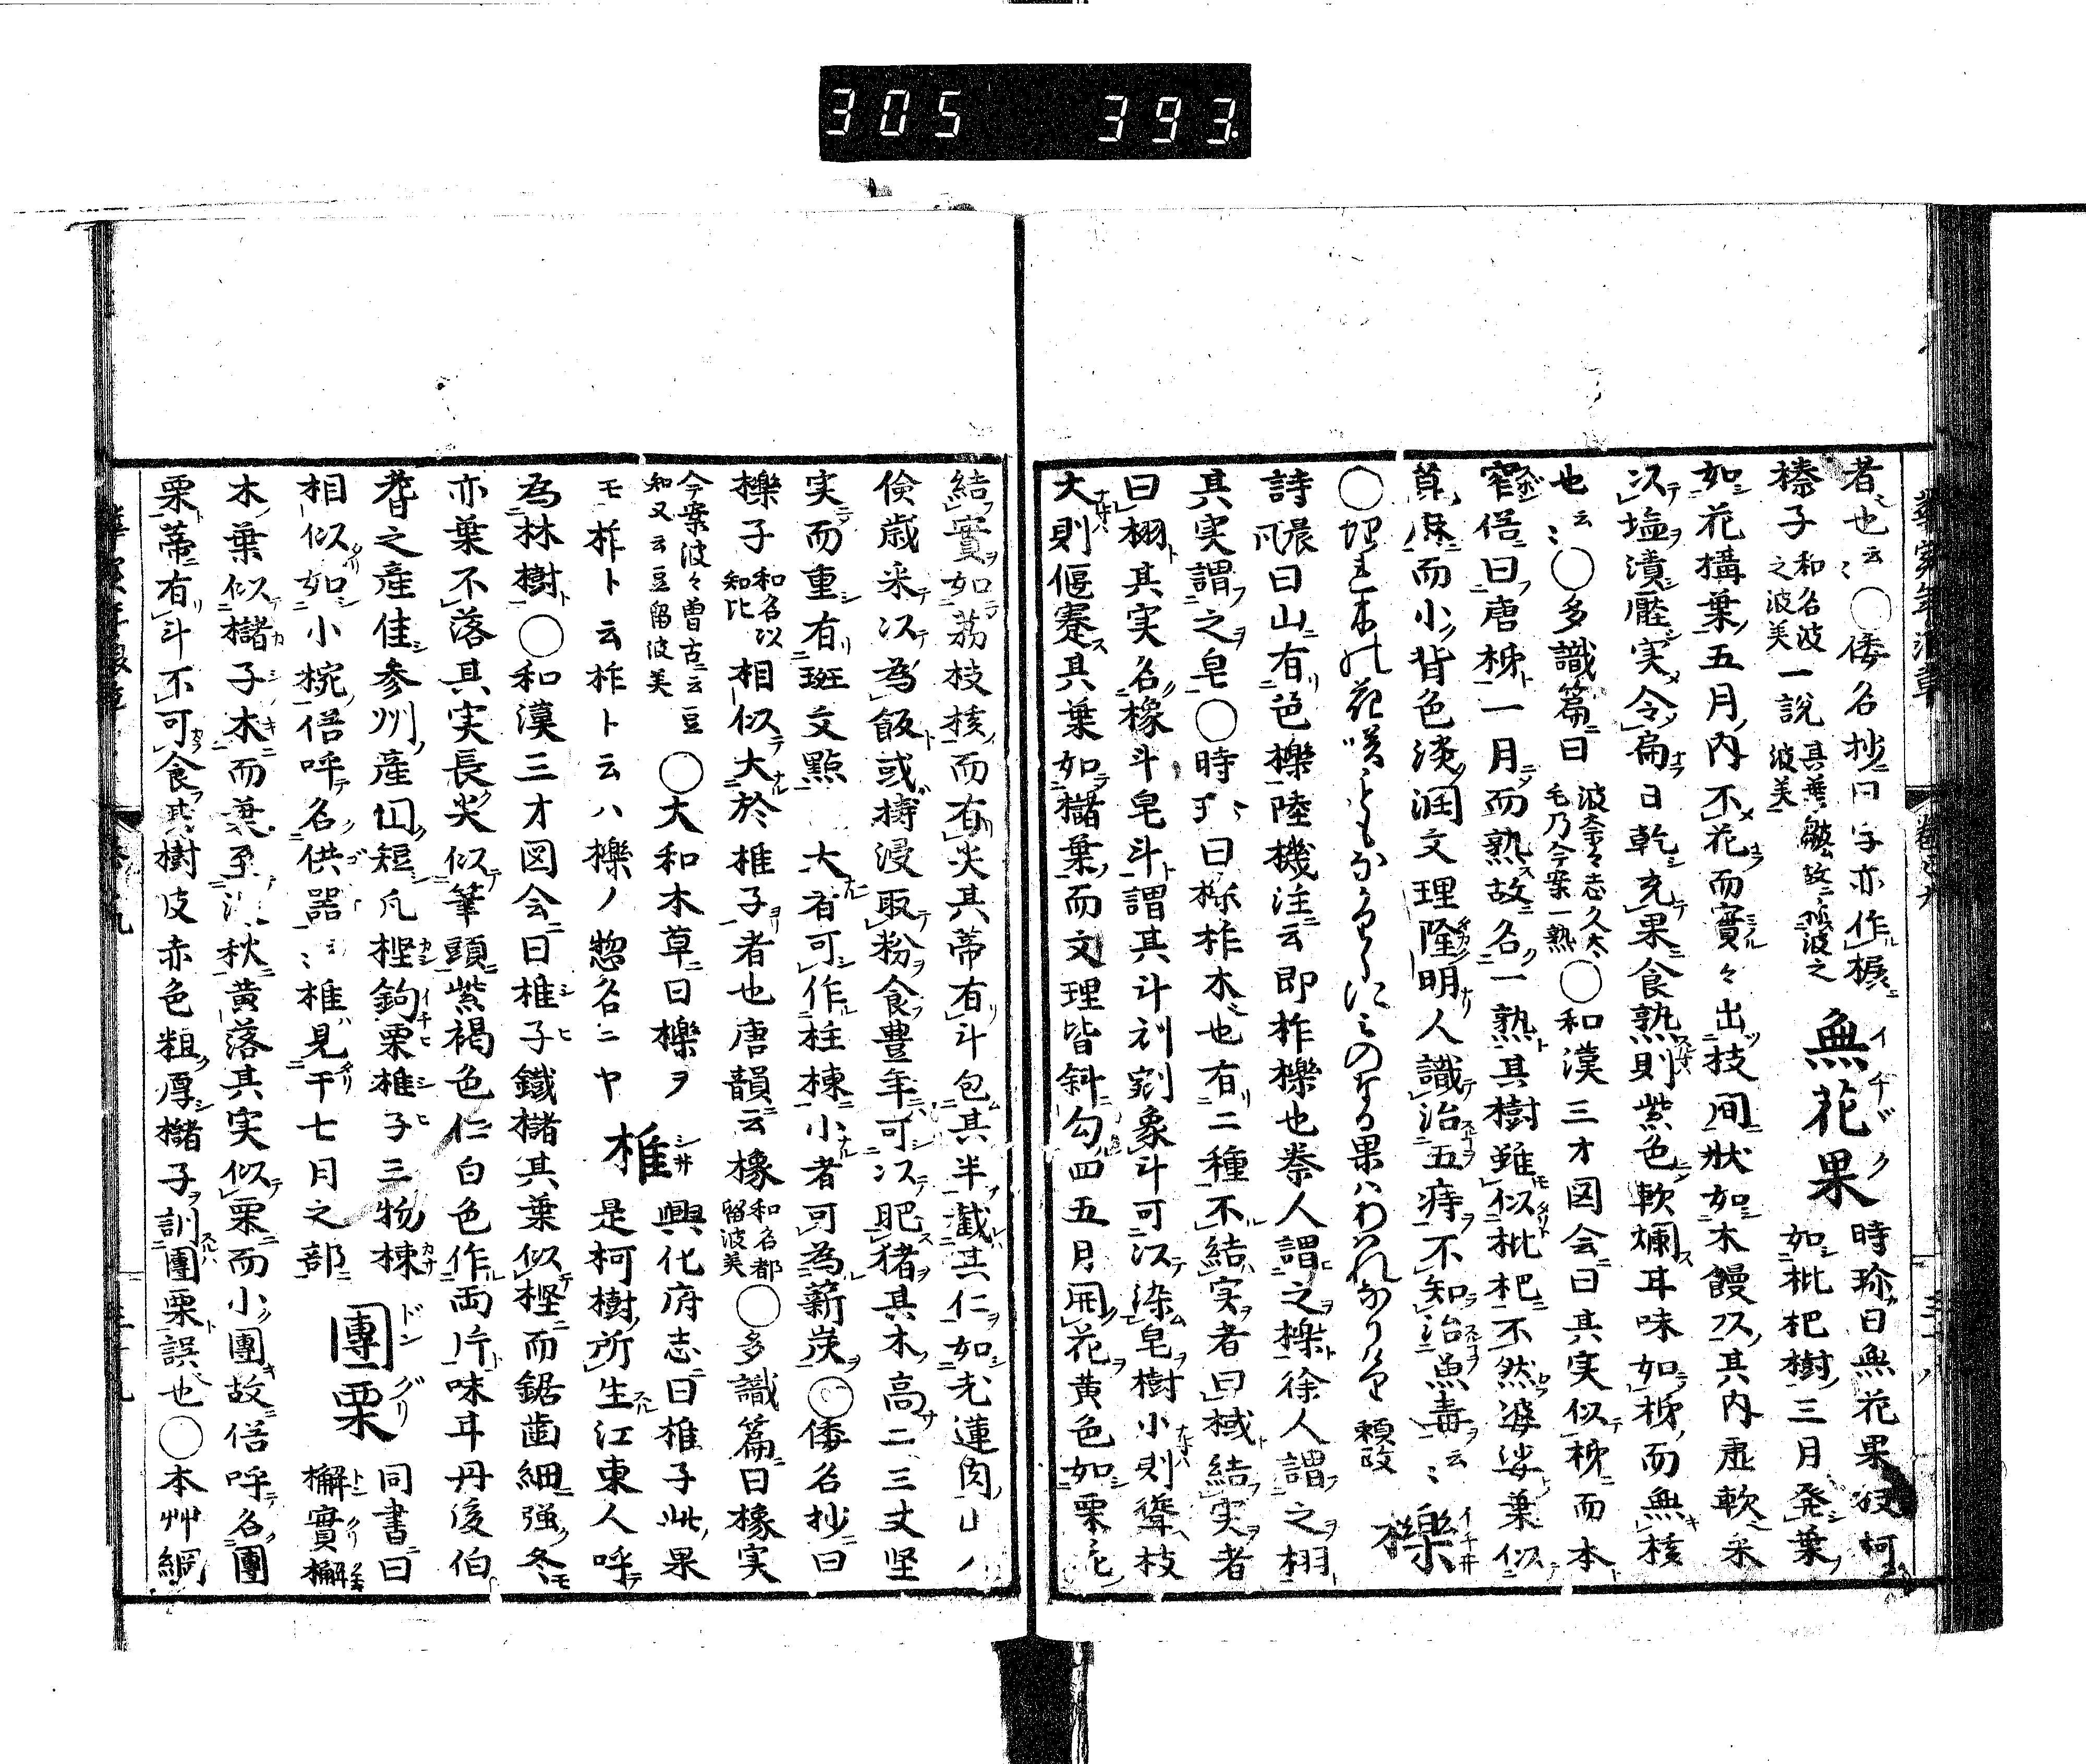 305 393.
者也云〻〇倭名抄曰字亦作榐
榛子和名波之波美一説其葉皺故名波之波美 無花果 イチヂク 時珍曰無花果
如枇杷樹三月発葉
如花構葉五月内不花而實々出枝間状如木饅頭其内虚軟采
以塩漬壓実令扁日乾充果食熟則紫色軟爛甘味如柿而無核
也云〻〇多識篇曰波奈々志久太毛乃今案一熟〇和漢三才図会曰其実似柿而本
窄俗曰唐柿一月而熟故名一熟其樹雖似枇杷不然婆娑葉似
而小背色淡润文理隆明人識治五痔不知治魚毒云〻 櫟 イチ井
〇埋れ木の花咲こともなかりしにみのなる果はわれなりける 頼政
詩晨風曰山有苞櫟陸機注云即柞櫟也秦人謂之櫟徐人謂之栩
其実謂之皂〇時珍曰櫟柞木也有二種不結実者曰棫結実者
曰栩其実名橡斗皂斗謂其斗刓剜象斗可以染皂樹小則聳枝
大則偃蹇其葉如櫧葉而文理皆斜勾四五月開花黄色如栗花
結實如茘枝核而有尖其蒂有斗包其半截其仁如老蓮肉山人
倹歳采以為飯或擣浸取粉食豊年可以肥猪其木高二三丈坚
実而重有斑文點 大者可作柱棟小者可為薪炭〇倭名抄曰
櫟子和名以知比相似大於椎子者也唐韻云橡和名都留波美〇多識篇曰橡実
今案波々曽古云豆知又云豆留波美〇大和木草曰櫟ヲ
モ柞ト云柞ト云ハ櫟ノ惣名ニヤ 椎 シ井 興化府志曰椎子此果
是柯樹所生江東人呼
為林樹〇和漢三才図会曰椎子鐵櫧其葉似樫而鋸歯細强冬
亦葉不落其実長尖似筆頭紫褐色仁白色作両片味甘丹後伯
耆之産佳参州産団短凡樫鉤栗椎子三物棟
相似如小椀俗呼名供器〻椎見于七月之部 團栗 ドングリ 同書曰
檞實檞
木葉似櫧子木而兼至深秋黄落其実似栗而小團故俗呼名團
栗蒂有斗不可食其樹皮赤色粗厚櫧子訓團栗誤也〇本艸綱